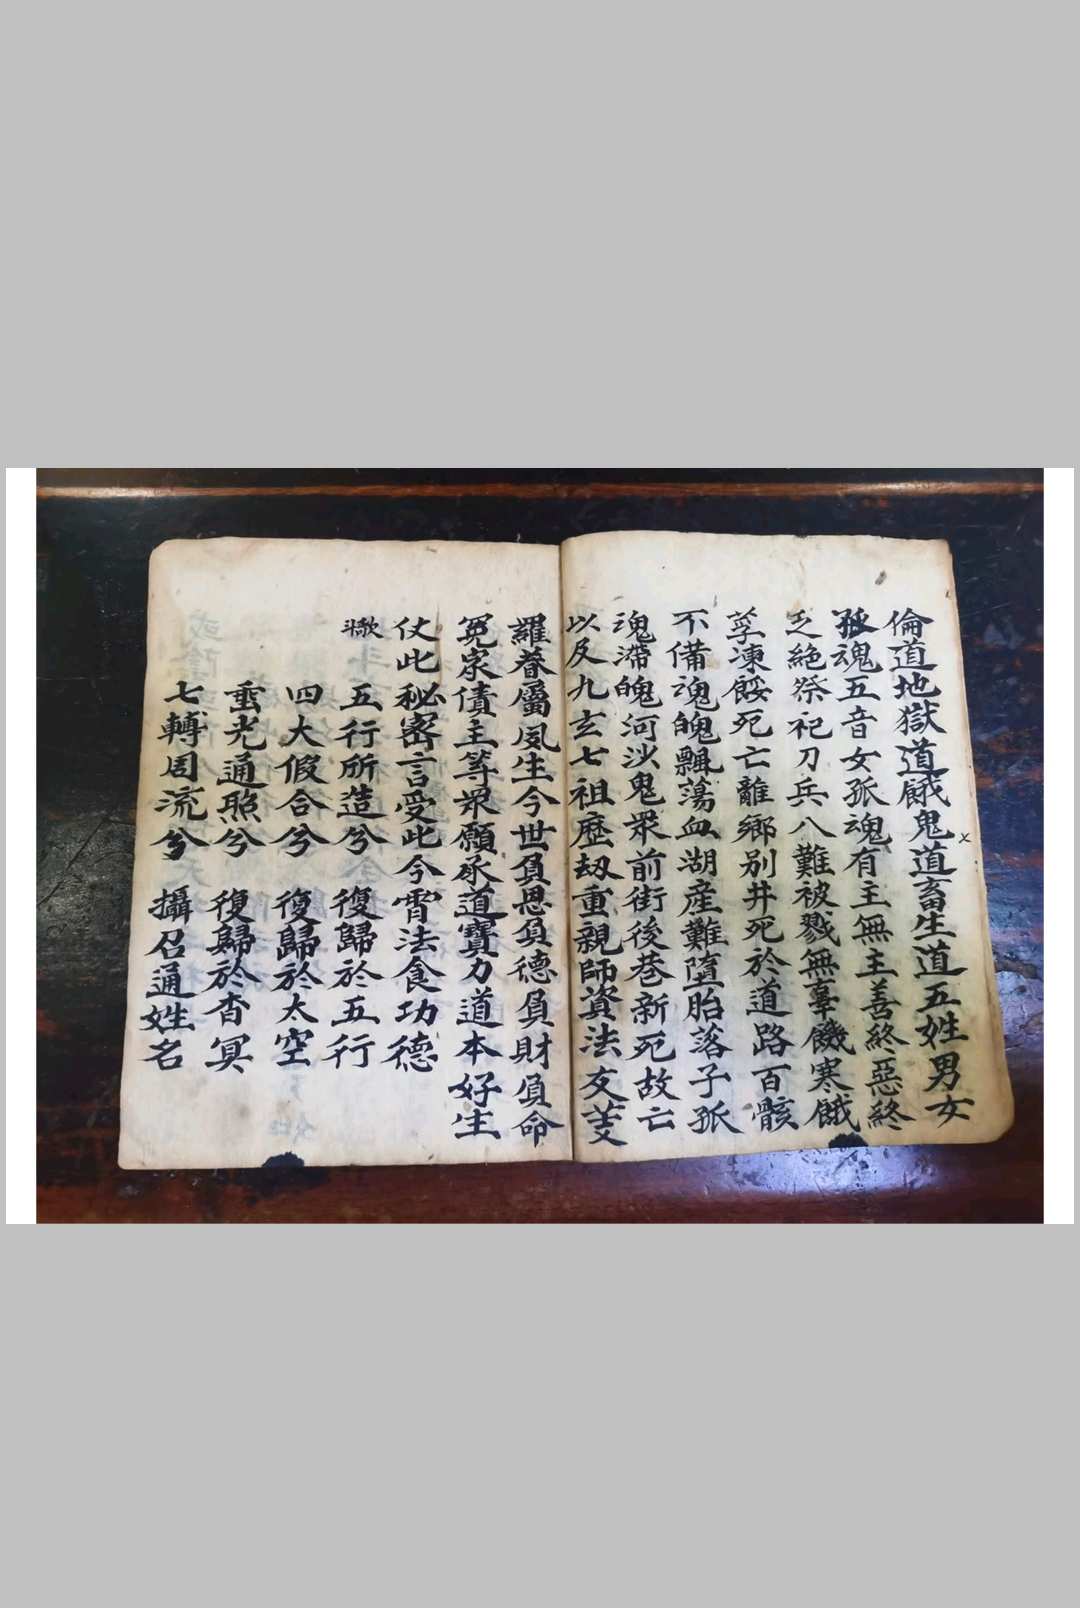 倫道地獄道餓鬼道畜生道五姓男女
孤魂五音女孤魂有主無主善終惡終
乏絶祭祀刀兵八難被戮無辜饑寒餓
莩凍餒死亡離鄉別井死於道路百骸
不備魂魄飄蕩血湖産難墮胎落子孤
魂滯魄河沙鬼眾前街後巷新死故亡
以及九玄七祖歷劫重親師資法友芰
羅眷屬夙生今世負恩負德負財負命
冤家債主等眾願承道寶力道本好生
仗此秘密言受此今宵法食功德
斗歌
五行所造兮 復歸於五行
四大假合兮 復歸於太空
重光通照兮 復歸於杳冥
七轉周流兮 攝召通姓名